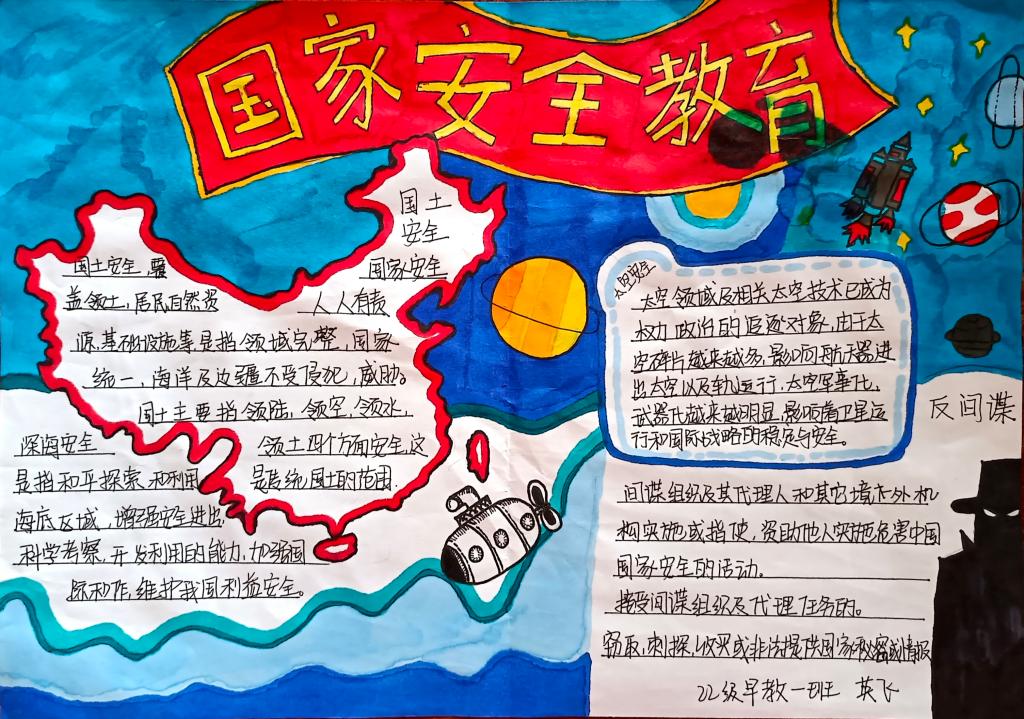 国家安全教育
国土
安全
国家安全
人人有责
国土安全,覆
盖领土,居民自然资
源,基础设施等是指领域完整,国家
统一,海洋及边疆不受侵犯,威胁。
国土主要指领陆,领空,领水,
领土四个方面安全,这
是传统国土的范围.
深海安全
是指和平探索和利用
海底区域,增强安全进出,
科学考察,开发利用的能力,加强国
际和作,维护我国利益安全。
太空安全
太空领域及相关太空技术已成为
权力政治的追逐对象,由于太
空碎片越来越多,影响司航天器进
出太空以及轨运行,太空军事化,
武器化越来越明显,影响着卫星运
行和国际战略的稳定与安全。
反间谍
间谍组织及其代理人和其它境外机
构实施或指使,资助他人实施危害中国
国家安全的活动。
接受间谍组织及代理任务的。
窃取,刺探,收买或非法提供国家秘密或情报
22级早教一班 英飞